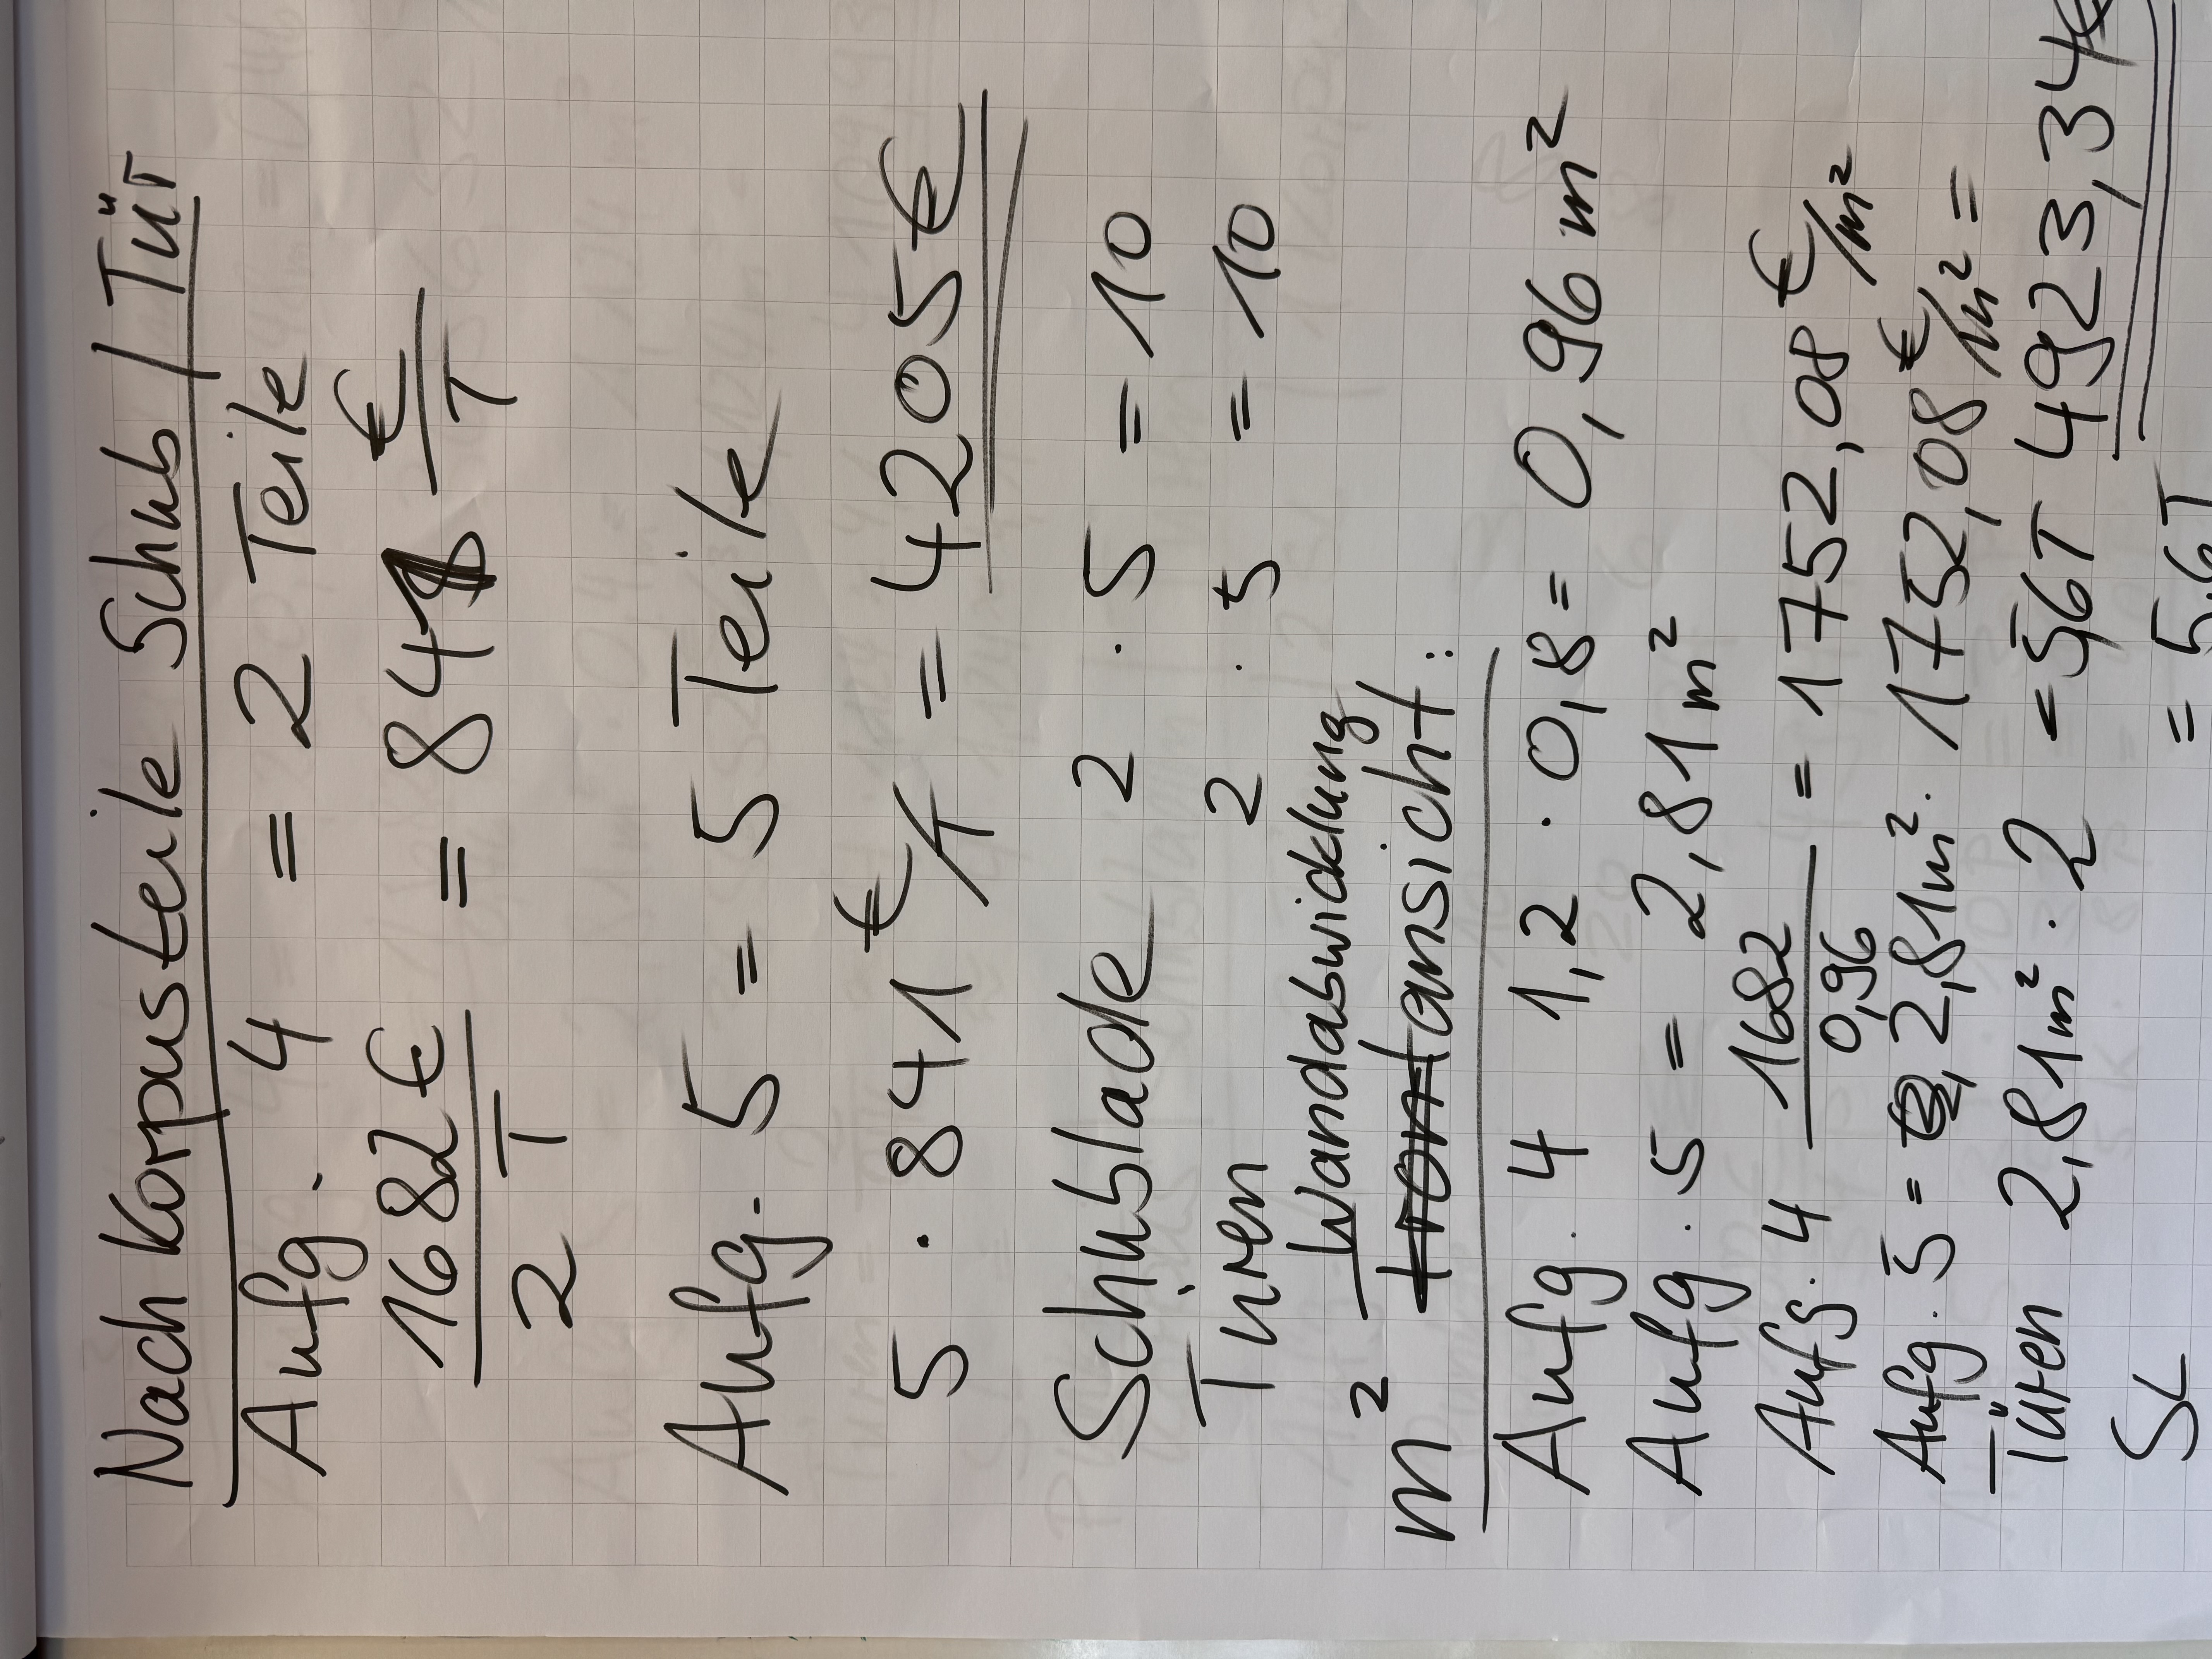 Nach Korpusteile Schub / Tür
Aufg. 4 = 2 Teile
1682 € / 2 T = 841 € / T
Aufg. 5 = 5 Teile
5 · 841 €/T = 4205 €
Schublade 2 · 5 = 10
Türen 2 · 5 = 10
Wandabwicklung
m² Frontansicht:
Aufg. 4 1,2 · 0,8 = 0,96 m²
Aufg. 5 = 2,81 m²
Aufg. 4 1682 / 0,96 = 1752,08 €/m²
Aufg. 5 = 2,81 m² · 1752,08 €/m² =
Türen 2,81 m² · 2 = 5,6 T 4923,34 €
SL = 5,6 T